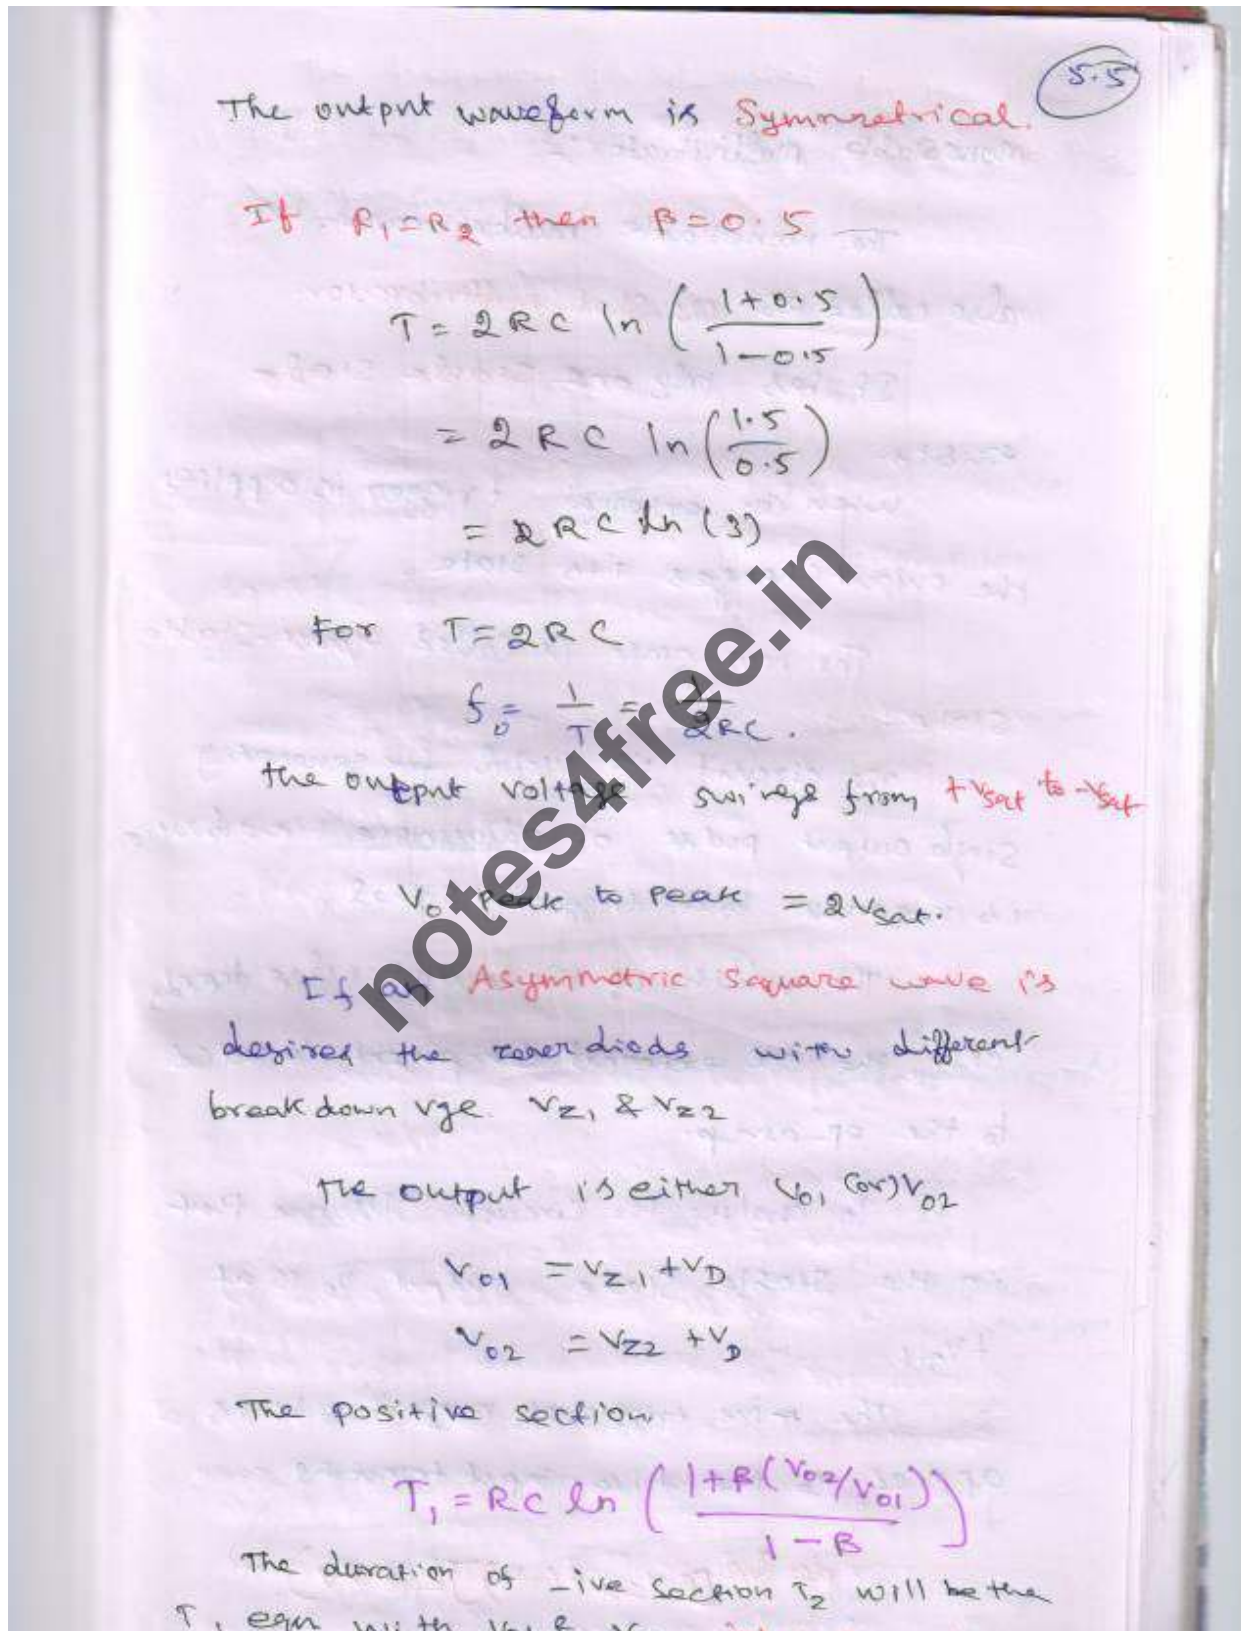 5.5
The output waveform is Symmetrical.
If R1=R2 then β=0.5
T = 2RC ln (1+0.5 / 1-0.5)
= 2RC ln (1.5 / 0.5)
= 2RC ln (3)
For T=2RC
fo = 1/T = 1/2RC.
the output voltage swings from +Vsat to -Vsat
Vo peak to peak = 2Vsat.
If an Asymmetric square wave is
desired the zener diods with different
break down vge. VZ1 & VZ2
The output is either Vo1 (or) Vo2
Vo1 = VZ1 + VD
Vo2 = VZ2 + VD
The positive section
T1 = RC ln (1+β(Vo2/Vo1) / 1-β)
The duration of -ive section T2 will be the
T1 eqn with
notes4free.in